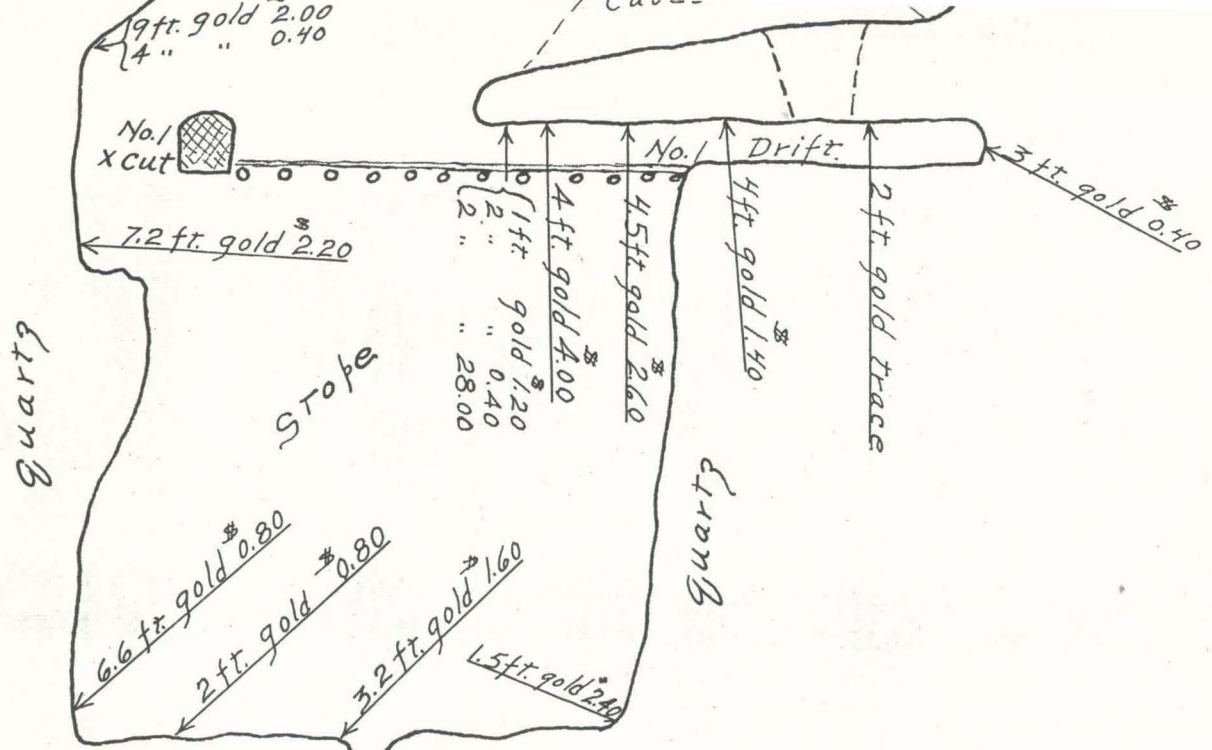 9 ft. gold 2.00
4 " " 0.40
No. 1
X cut
No. 1 Drift.
3 ft. gold $ 0.40
7.2 ft. gold $ 2.20
1 ft. gold $ 1.20
2 " " 0.40
2 " " 28.00
4 ft. gold $ 4.00
4.5 ft. gold $ 2.60
4 ft. gold $ 1.40
2 ft. gold trace
quartz
Stope
quartz
6.6 ft. gold $ 0.80
2 ft. gold $ 0.80
3.2 ft. gold $ 1.60
1.5 ft. gold $ 2.40